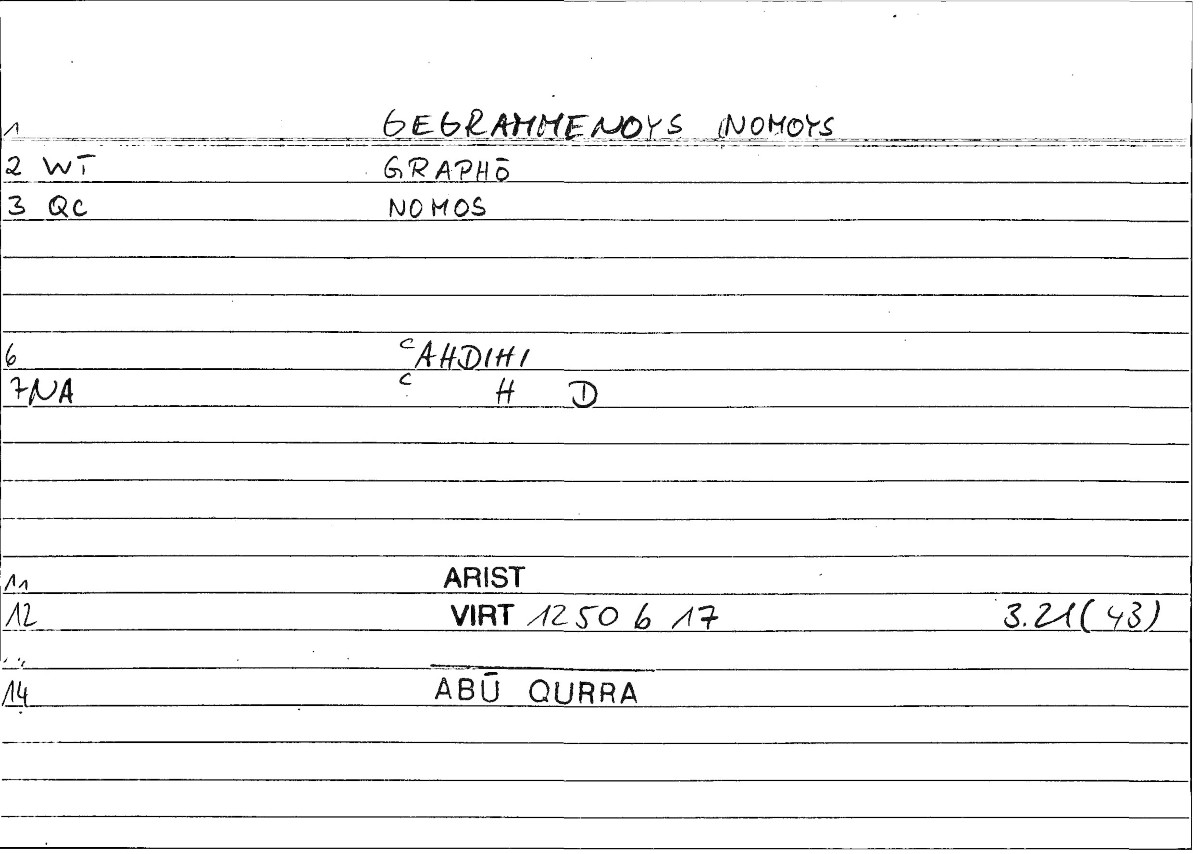 1 GEGRAMMENOYS NOMOYS
2 WT GRAPHŌ
3 QC NOMOS
6 ᶜAHDIHI
7 NA ᶜ H D
11 ARIST
12 VIRT 1250 b 17 3.21(43)
14 ABŪ QURRA